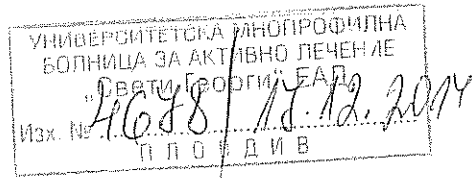 УНИВЕРСИТЕТСКА МНОПРОФИЛНА
БОЛНИЦА ЗА АКТИВНО ЛЕЧЕНИЕ
„Свети Георги" ЕАД
Изх. № 4678 / 17.12.2014
ПЛОВДИВ